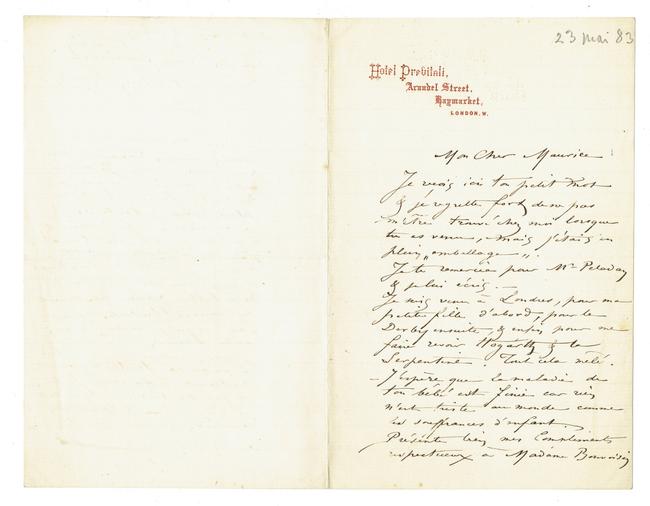 23 mai 83
Hotel Previtali,
Arundel Street,
Haymarket,
LONDON, W.
Mon Cher Maurice
Je reçois ici ton petit mot
& je regrette fort de ne pas
m'être trouvé chez moi lorsque
tu es venu, mais j'étais en
plein „emballage".
Je te remercie pour Mr Peladan
& je lui écris. —
Je suis venu à Londres, pour ma
petite fille d'abord, pour le
Derby ensuite, & enfin pour me
faire revoir Hogarth & la
Serpentine. Tout cela mêlé.
— J'espère que la maladie de
ton bébé est finie car rien
n'est triste au monde comme
les souffrances d'enfant.
Présente bien mes Compliments
respectueux à Madame